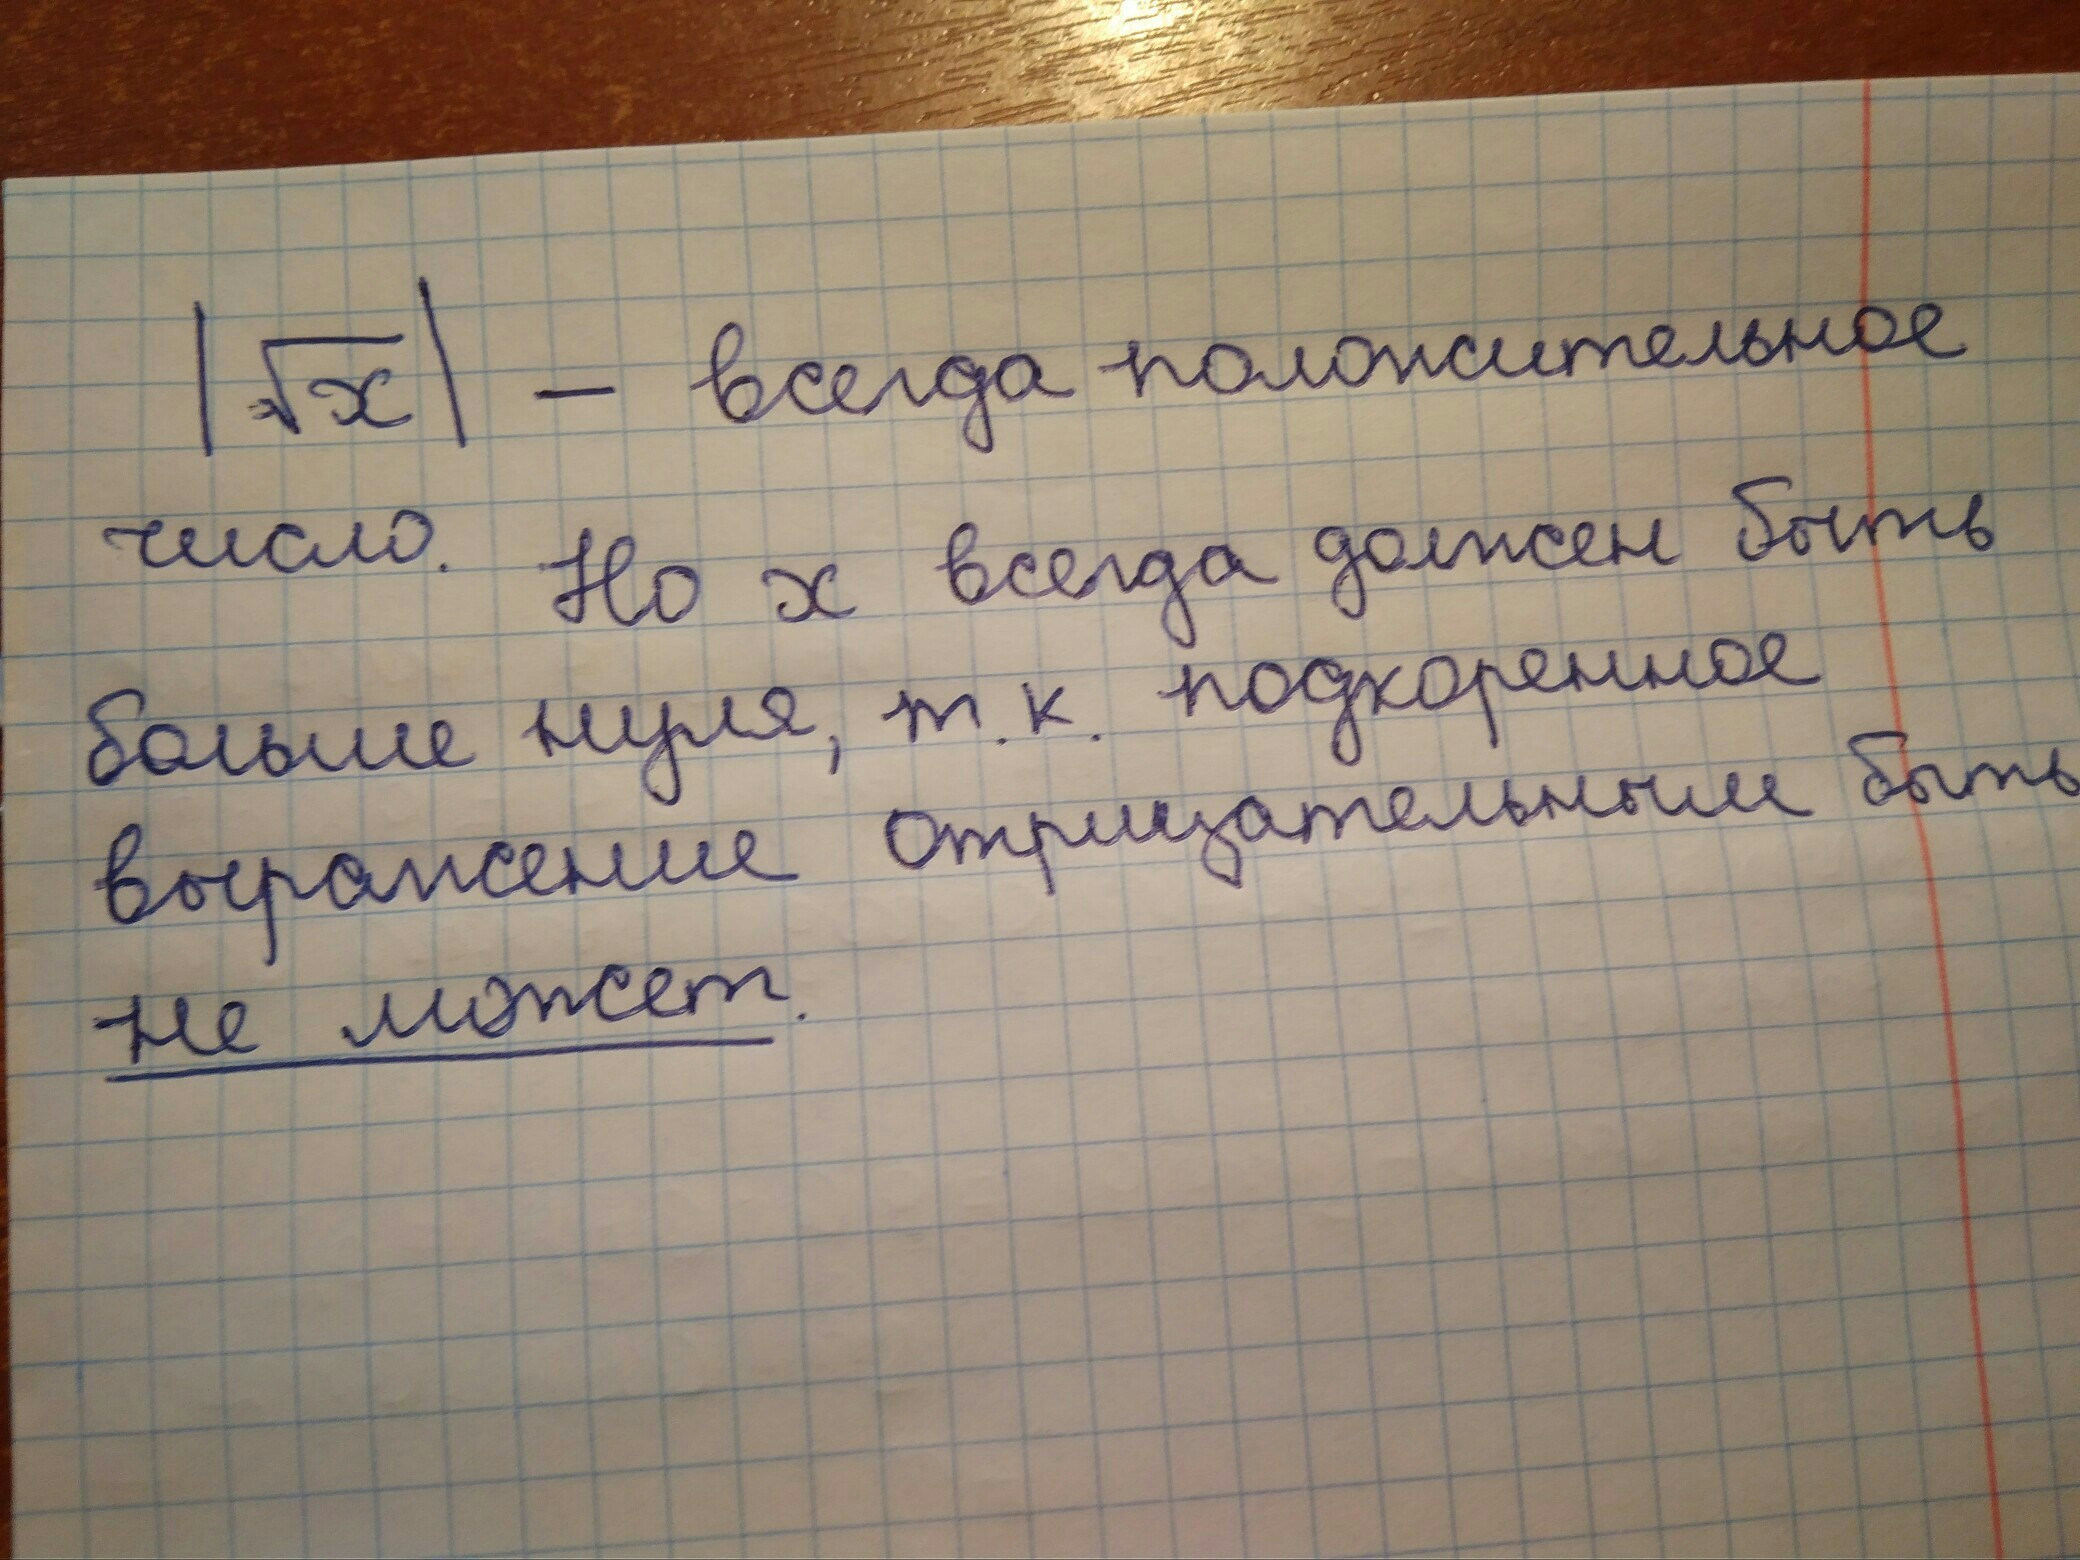 |√x| – всегда положительное
число. Но x всегда должен быть
больше нуля, т.к. подкоренное
выражение отрицательным быть
не может.